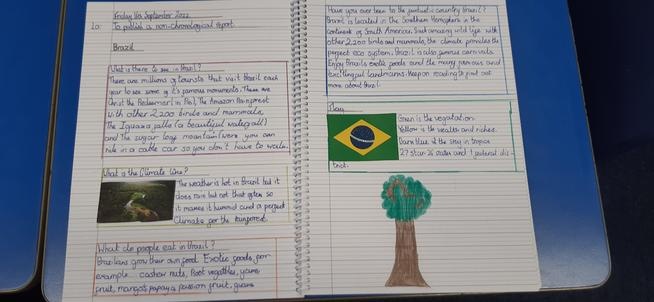 Friday 16th September 2022
LO: To publish a non-chronological report.
Brazil
What is there to see in Brazil?
There are millions of tourists that visit Brazil each
year to see some of it's famous monuments. These are
Christ the Redeemer (in Rio), The Amazon Rainforest
with other 2,200 birds and mammals,
The Iguazu falls (a beautiful waterfall)
and The sugar loaf mountain (were you can
ride in a cable car so you don't have to walk.
What is the Climate like?
The weather is hot in Brazil but it
does rain but not that often so
it makes it humid and a perfect
Climate for the rainforest.
What do people eat in Brazil?
Brazilians grow their own food. Exotic foods, for
example cashew nuts, Root vegetables,
fruit, mangos, papaya, passion fruit, guava
Have you ever been to the fantastic country Brazil?
Brazil is located in the Southern Hemisphere in the
continent of South America. Such amazing wild life with
other 2,200 birds and mammals, the climate provides the
perfect eco system. Brazil is also famous carnivals.
Enjoy Brazils exotic foods and the many famous and
exciting landmarks. Keep on reading to find out
more about Brazil.
Flag
Green is the vegetation
Yellow is the wealth and riches.
Dark blue is the sky in tropics
27 stars 26 states and 1 federal dis-
trict.